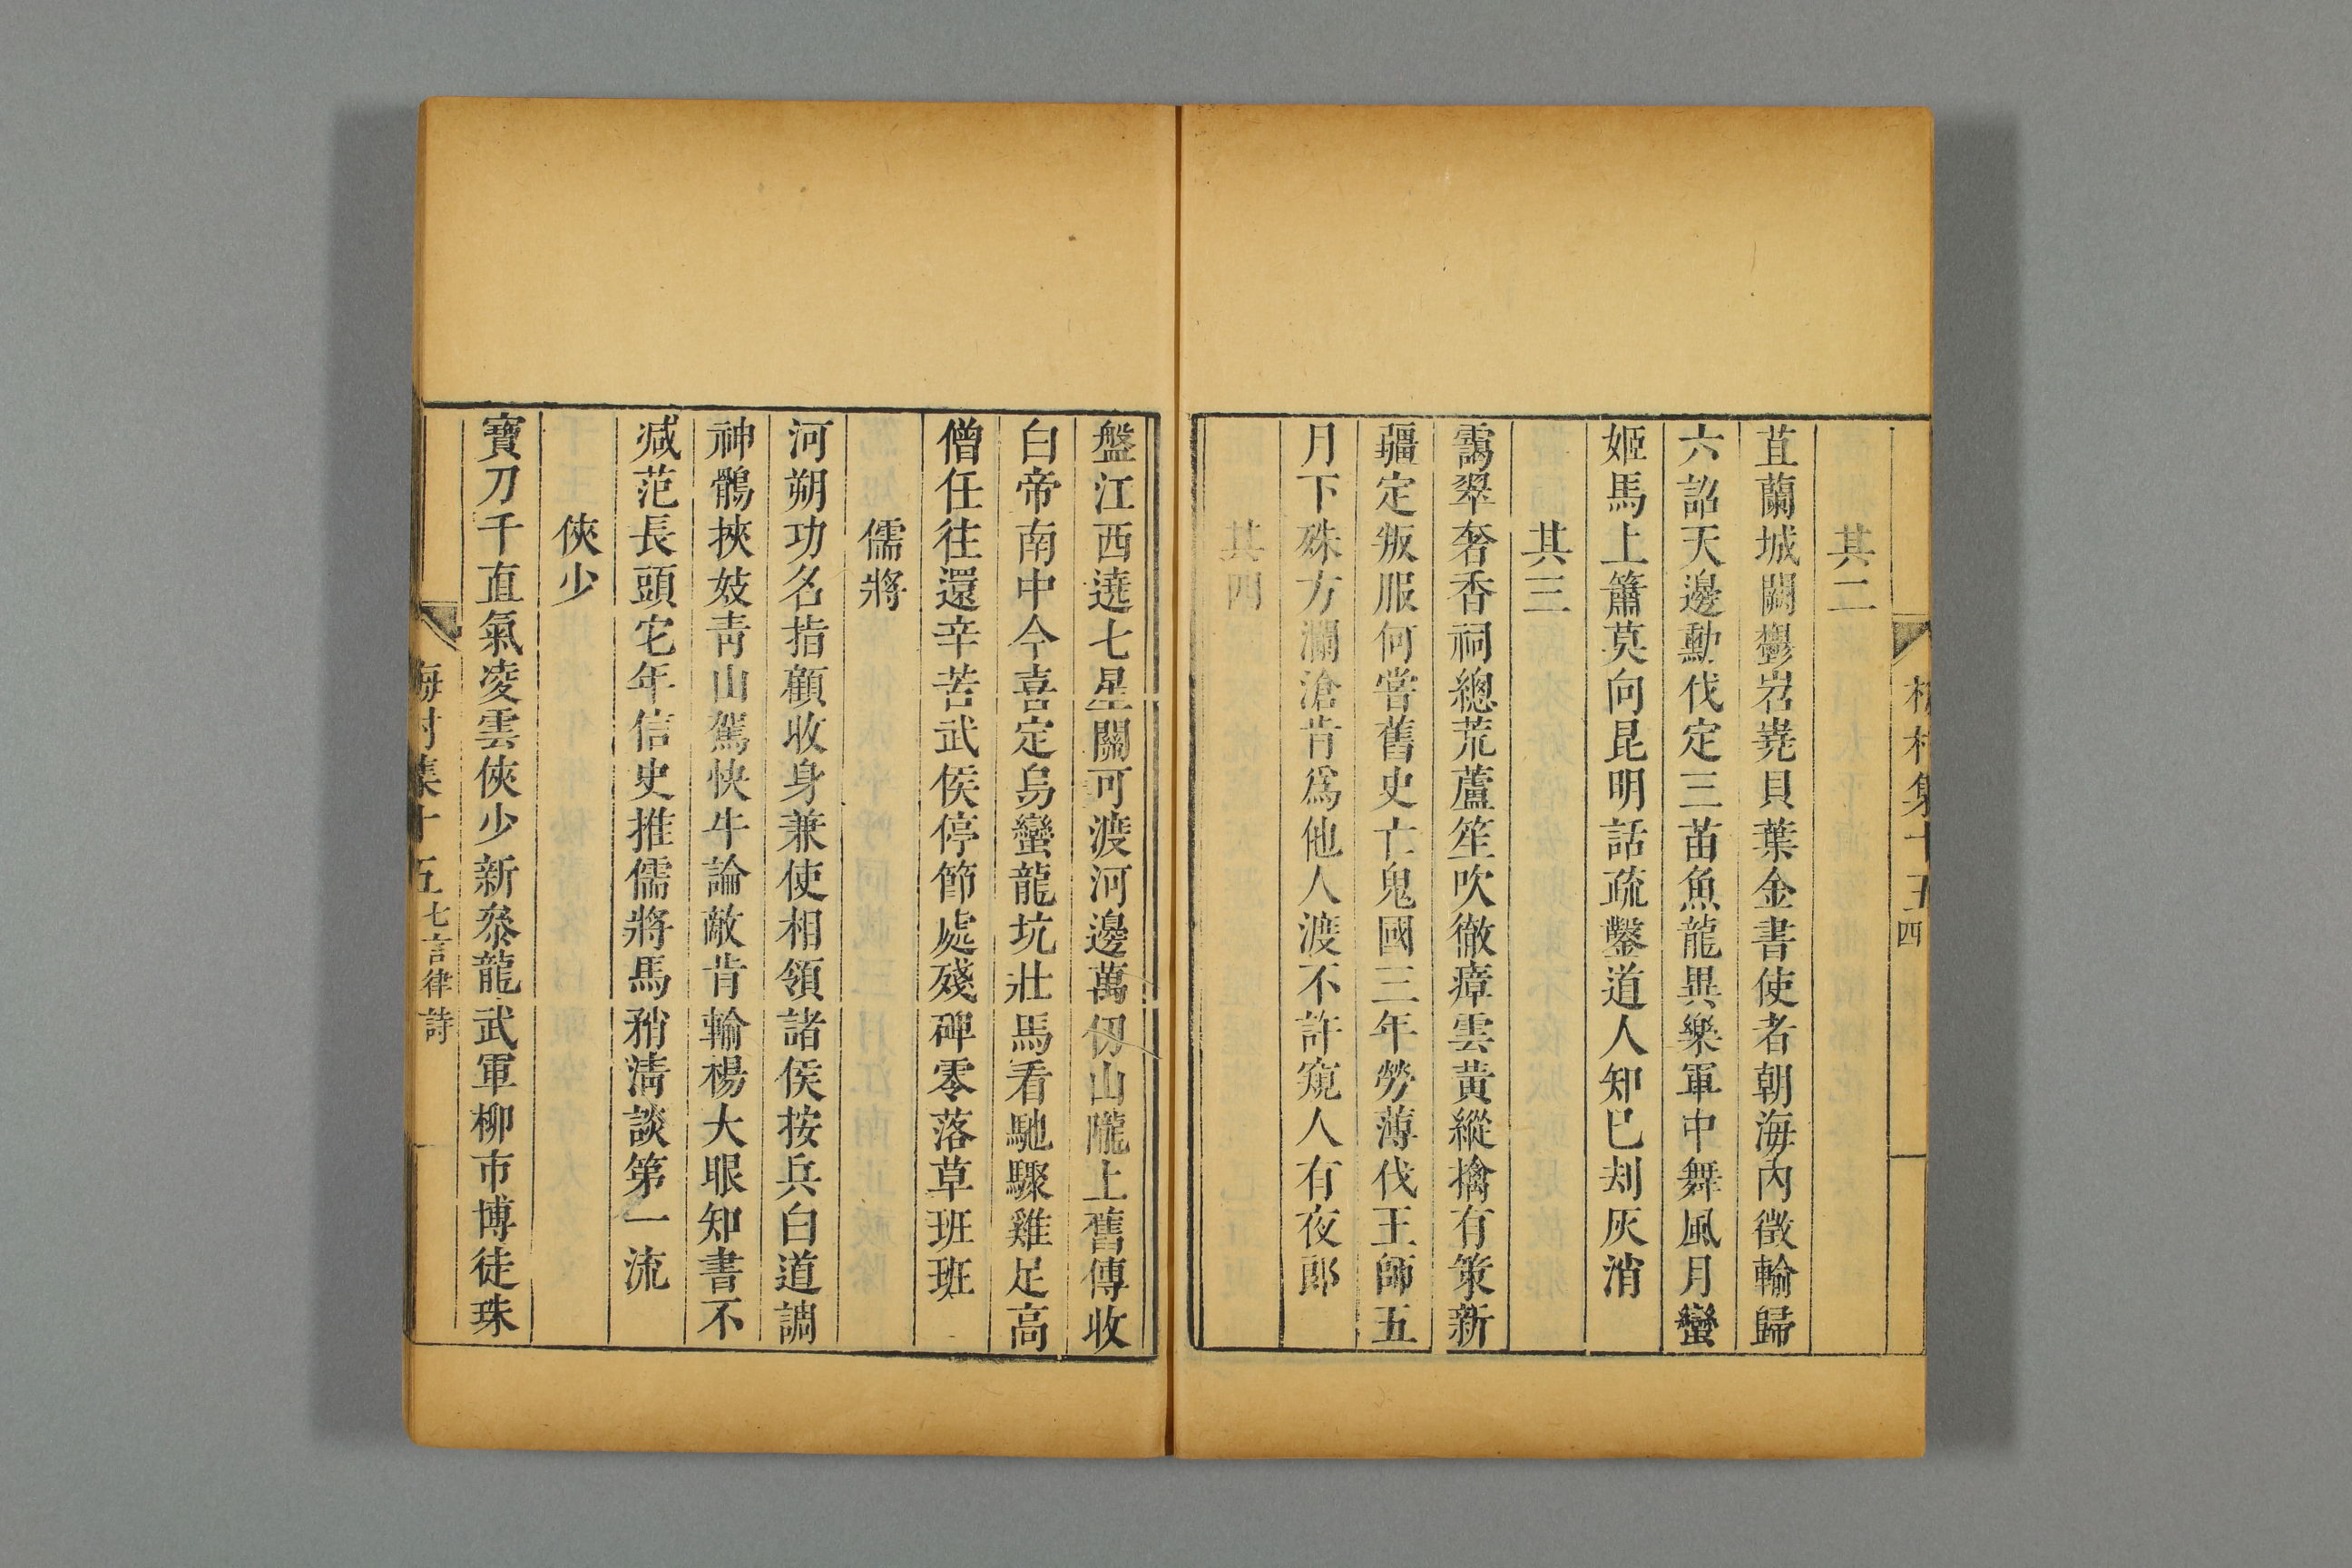 梅村集十五 四
其二
苴蘭城闕鬱岧嶤貝葉金書使者朝海內徵輸歸
六詔天邊勳伐定三苗魚龍異樂軍中舞風月蠻
姬馬上簫莫向昆明話疏鑿道人知巳刦灰消
其三
靄翠奢香祠總荒蘆笙吹徹瘴雲黃縱擒有策新
疆定叛服何嘗舊史亡鬼國三年勞薄伐王師五
月下殊方瀾滄肯爲他人渡不許窺人有夜郎
其四
盤江西遶七星關可渡河邊萬仭山隴上舊傳收
白帝南中今喜定烏蠻龍坑壯馬看馳驟雞足高
僧任往還辛苦武侯停節處殘碑零落草班班
儒將
河朔功名指顧收身兼使相領諸侯按兵白道調
神鶻挾妓靑山駕快牛論敵肯輸楊大眼知書不
减范長頭它年信史推儒將馬矟淸談第一流
俠少
寶刀千直氣凌雲俠少新叅龍武軍柳市博徒珠
梅村集十五 七言律詩